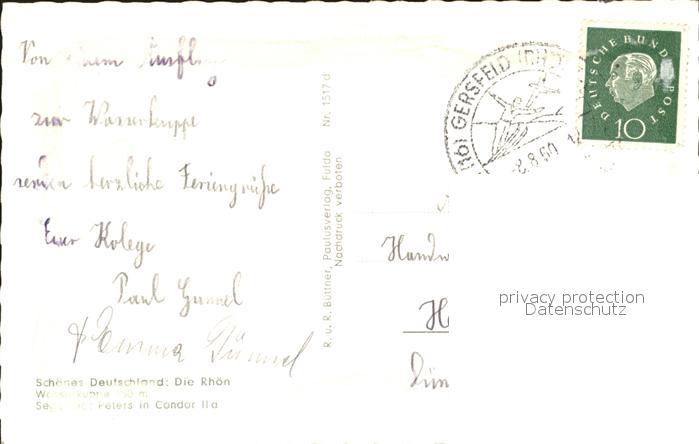 Von einem Ausflug
zur Wasserkuppe
senden herzliche Feriengrüße
Euer Kolege
Paul Gummel
Emma Gummel
Schönes Deutschland: Die Rhön
Wasserkuppe 950 m
Peters in Condor IIa
R. u. R. Büttner, Paulusverlag, Fulda Nr. 1517 d
Nachdruck verboten
GERSFELD
8.8.60
DEUTSCHE BUNDESPOST
10
Handw
H
Dün
privacy protection
Datenschutz